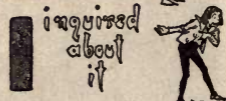 I inquired
about
it